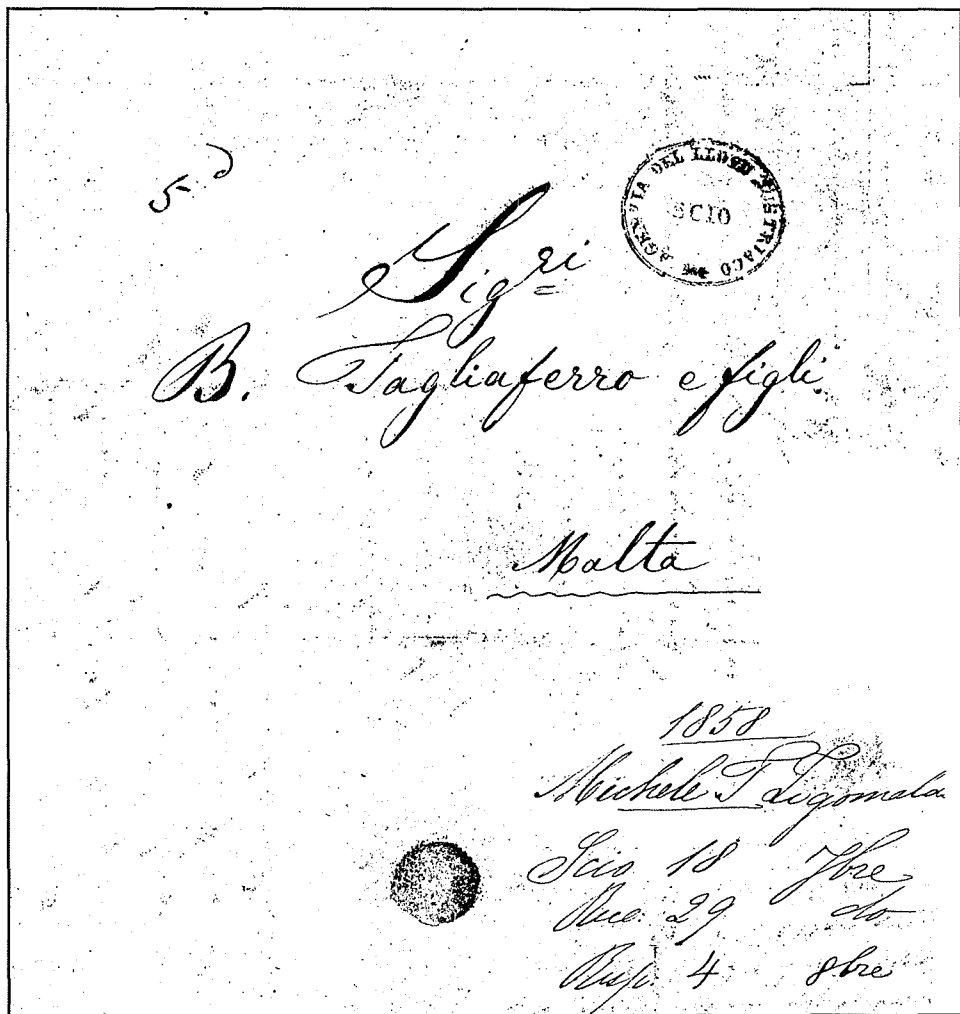 5 d
AGENZIA DEL LLOYD AUSTRIACO
SCIO
Sigri
B. Tagliaferro e figli.
Malta
1858
Michele T
Scio 18 7bre
Rice. 29 do
Risp. 4 8bre